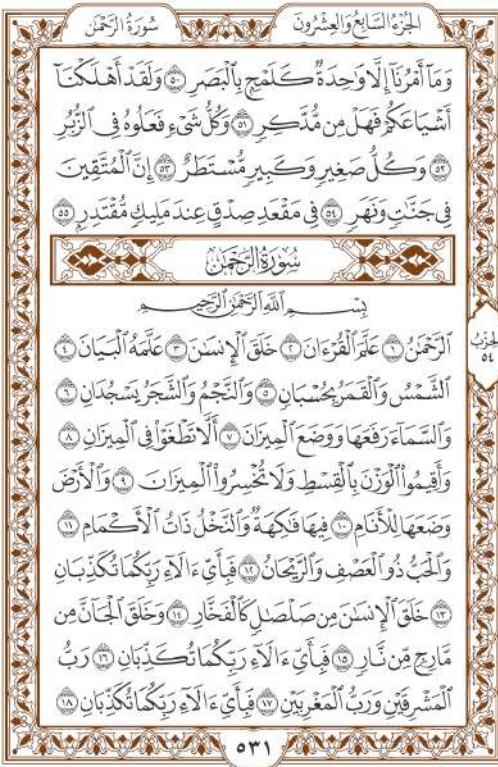 الجُزْءُ السَّابِعُ وَالعِشْرُونَ سُورَةُ الرَّحْمَٰن
وَمَآ أَمْرُنَآ إِلَّا وَٰحِدَةٌ كَلَمْحٍۭ بِٱلْبَصَرِ ٥٠ وَلَقَدْ أَهْلَكْنَآ
أَشْيَاعَكُمْ فَهَلْ مِن مُّدَّكِرٍ ٥١ وَكُلُّ شَىْءٍ فَعَلُوهُ فِى ٱلزُّبُرِ
٥٢ وَكُلُّ صَغِيرٍ وَكَبِيرٍ مُّسْتَطَرٌ ٥٣ إِنَّ ٱلْمُتَّقِينَ
فِى جَنَّٰتٍ وَنَهَرٍ ٥٤ فِى مَقْعَدِ صِدْقٍ عِندَ مَلِيكٍ مُّقْتَدِرٍۭ ٥٥
سُورَةُ الرَّحْمَٰن
بِسْمِ ٱللَّهِ ٱلرَّحْمَٰنِ ٱلرَّحِيمِ
ٱلرَّحْمَٰنُ ١ عَلَّمَ ٱلْقُرْءَانَ ٢ خَلَقَ ٱلْإِنسَٰنَ ٣ عَلَّمَهُ ٱلْبَيَانَ ٤
ٱلشَّمْسُ وَٱلْقَمَرُ بِحُسْبَانٍ ٥ وَٱلنَّجْمُ وَٱلشَّجَرُ يَسْجُدَانِ ٦
وَٱلسَّمَآءَ رَفَعَهَا وَوَضَعَ ٱلْمِيزَانَ ٧ أَلَّا تَطْغَوْا۟ فِى ٱلْمِيزَانِ ٨
وَأَقِيمُوا۟ ٱلْوَزْنَ بِٱلْقِسْطِ وَلَا تُخْسِرُوا۟ ٱلْمِيزَانَ ٩ وَٱلْأَرْضَ
وَضَعَهَا لِلْأَنَامِ ١٠ فِيهَا فَٰكِهَةٌ وَٱلنَّخْلُ ذَاتُ ٱلْأَكْمَامِ ١١
وَٱلْحَبُّ ذُو ٱلْعَصْفِ وَٱلرَّيْحَانُ ١٢ فَبِأَىِّ ءَالَآءِ رَبِّكُمَا تُكَذِّبَانِ
١٣ خَلَقَ ٱلْإِنسَٰنَ مِن صَلْصَٰلٍ كَٱلْفَخَّارِ ١٤ وَخَلَقَ ٱلْجَآنَّ مِن
مَّارِجٍ مِّن نَّارٍ ١٥ فَبِأَىِّ ءَالَآءِ رَبِّكُمَا تُكَذِّبَانِ ١٦ رَبُّ
ٱلْمَشْرِقَيْنِ وَرَبُّ ٱلْمَغْرِبَيْنِ ١٧ فَبِأَىِّ ءَالَآءِ رَبِّكُمَا تُكَذِّبَانِ ١٨
الحِزْبُ
٥٤
٥٣١